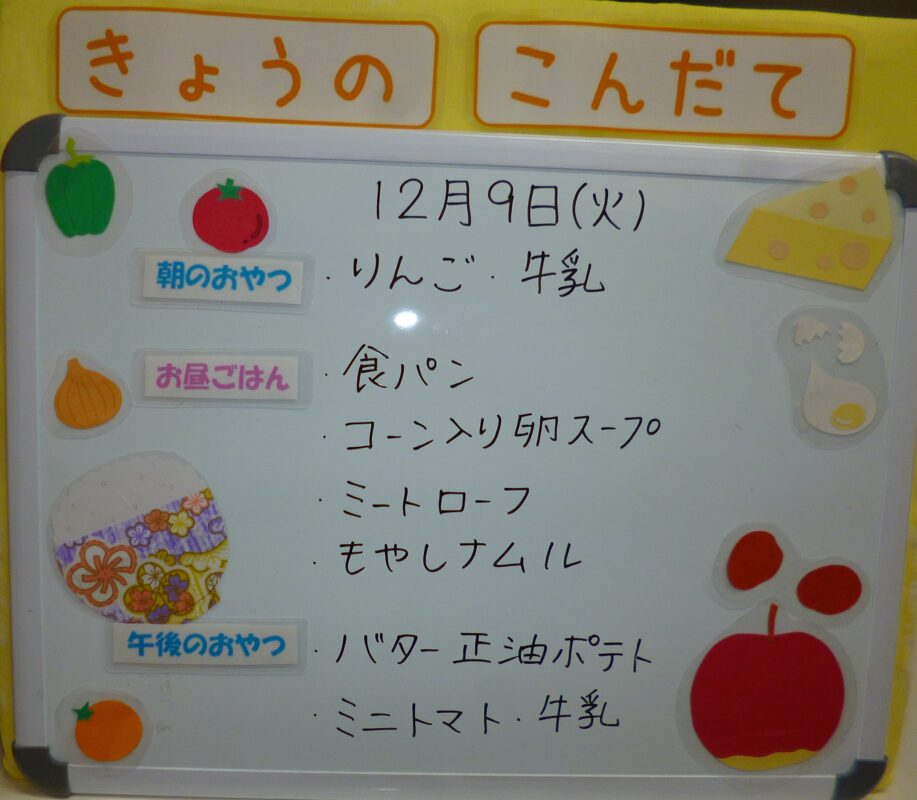 きょうの こんだて
12月9日(火)
朝のおやつ ・りんご・牛乳
お昼ごはん ・食パン
・コーン入り卵スープ
・ミートローフ
・もやしナムル
午後のおやつ ・バター正油ポテト
・ミニトマト・牛乳